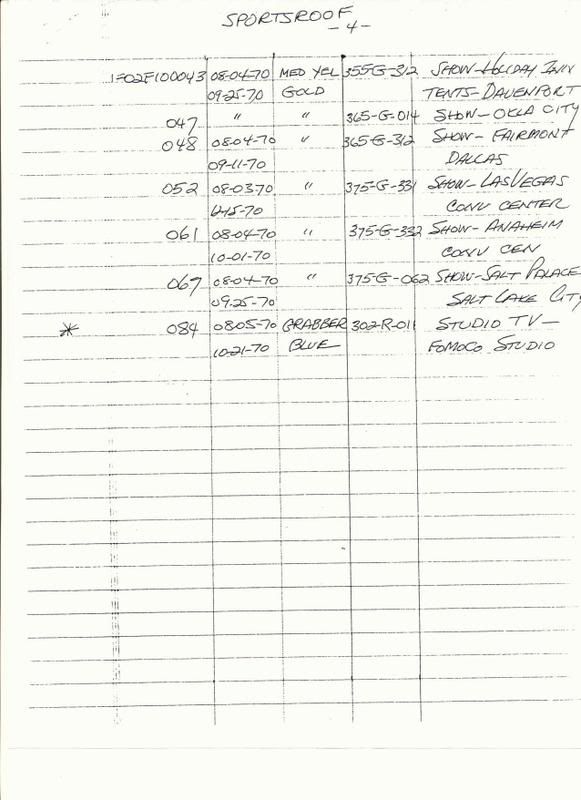 SPORTSROOF
-4-
1F02F100043 08-04-70 MED YEL 355-G-312 SHOW-HOLIDAY INN
09-25-70 GOLD TENTS-DAVENPORT
047 " " 365-G-014 SHOW-OKLA CITY
048 08-04-70 " 365-G-312 SHOW-FAIRMONT
09-11-70 DALLAS
052 08-03-70 " 375-G-331 SHOW-LAS VEGAS
CONV CENTER
061 08-04-70 " 375-G-332 SHOW-ANAHEIM
10-01-70 CONV CEN
067 08-04-70 " 375-G-062 SHOW-SALT PALACE
09-25-70 SALT LAKE CITY
* 084 08-05-70 GRABBER 302-R-011 STUDIO TV-
10-21-70 BLUE FOMOCO STUDIO